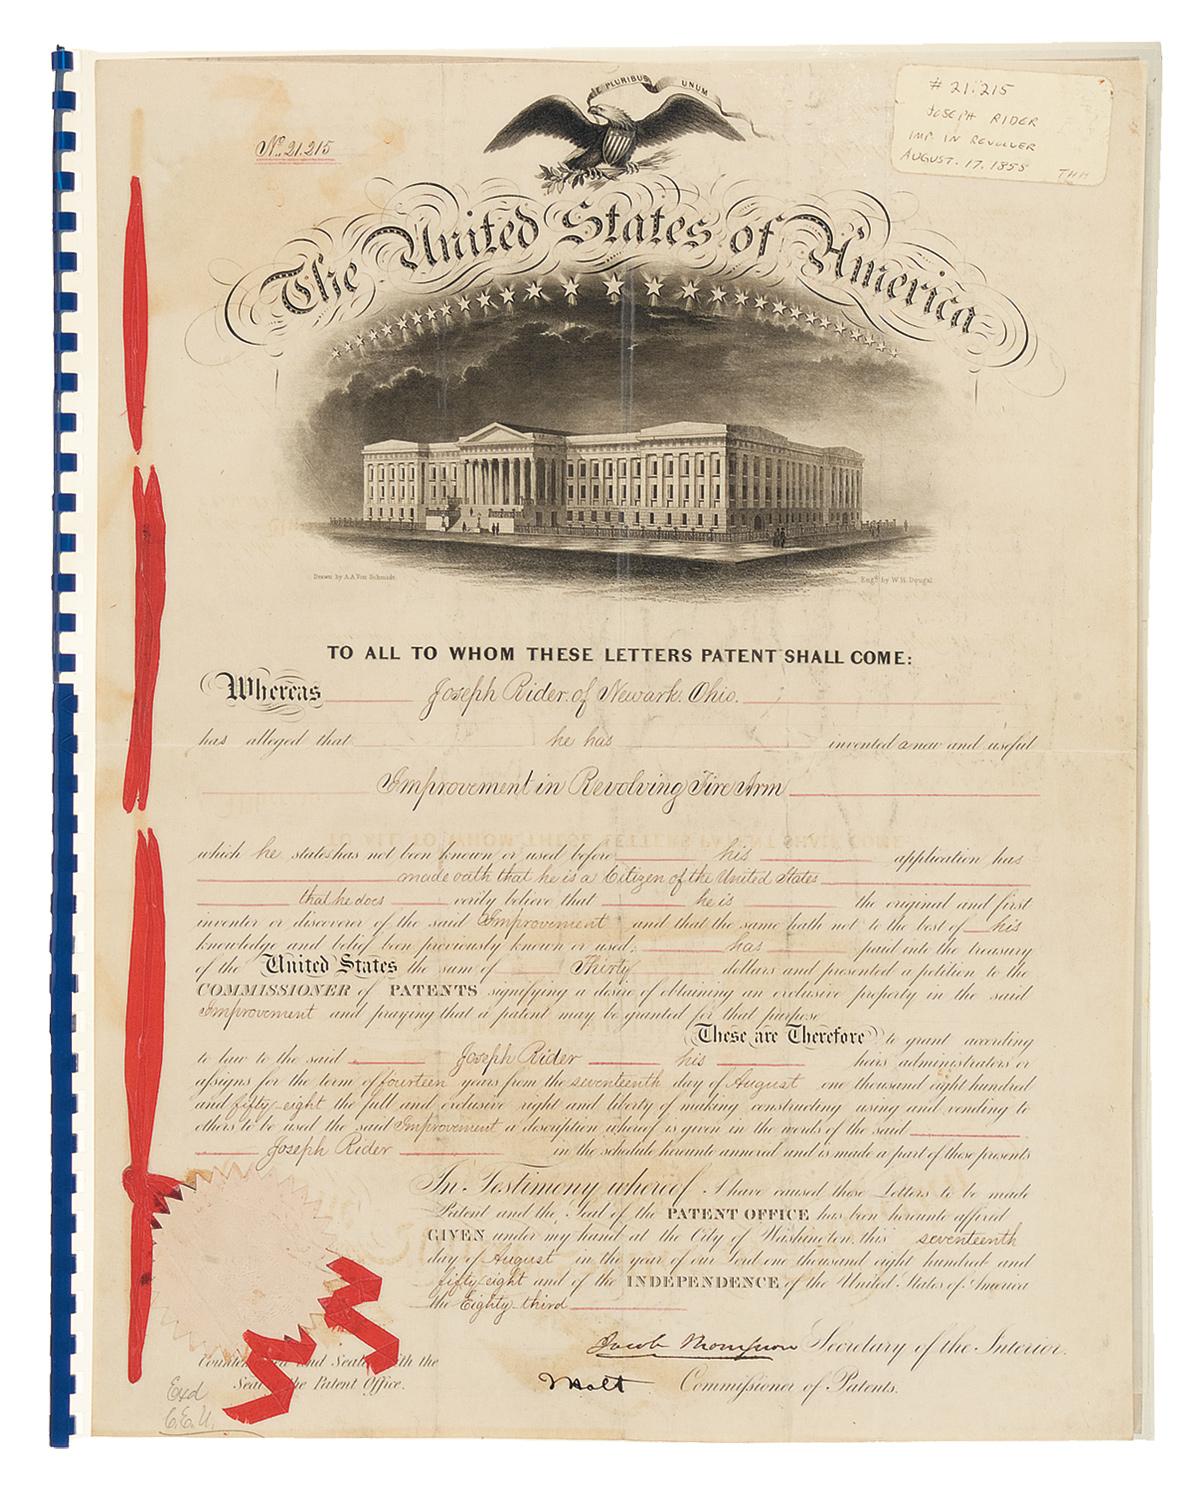 E PLURIBUS UNUM
# 21:215
JOSEPH RIDER
IMP. IN REVOLVER
AUGUST. 17. 1858
THH
No. 21.215
The United States of America
Drawn by A.A Von Schmidt.
Engd. by W.H. Dougal
TO ALL TO WHOM THESE LETTERS PATENT SHALL COME:
Whereas Joseph Rider of Newark Ohio.
has alleged that he has invented a new and useful
Improvement in Revolving Fire Arm
which he states has not been known or used before his application has
made oath that he is a Citizen of the United States
that he does verily believe that he is the original and first
inventor or discoverer of the said Improvement and that the same hath not to the best of his
knowledge and belief been previously known or used; has paid into the treasury
of the United States the sum of Thirty dollars and presented a petition to the
COMMISSIONER of PATENTS signifying a desire of obtaining an exclusive property in the said
Improvement and praying that a patent may be granted for that purpose
These are Therefore to grant according
to law to the said Joseph Rider his heirs administrators or
assigns for the term of fourteen years from the seventeenth day of August one thousand eight hundred
and fifty-eight the full and exclusive right and liberty of making constructing using and vending to
others to be used the said Improvement a description whereof is given in the words of the said
Joseph Rider in the schedule hereunto annexed and is made a part of these presents
In Testimony whereof I have caused these Letters to be made
Patent and the Seal of the PATENT OFFICE has been hereunto affixed
GIVEN under my hand at the City of Washington this seventeenth
day of August in the year of our Lord one thousand eight hundred and
fifty eight and of the INDEPENDENCE of the United States of America
the Eighty third
Jacob Thompson Secretary of the Interior.
Counter and Seal with the
Seal the Patent Office.
Holt Commissioner of Patents.
Exd
C.E.U.